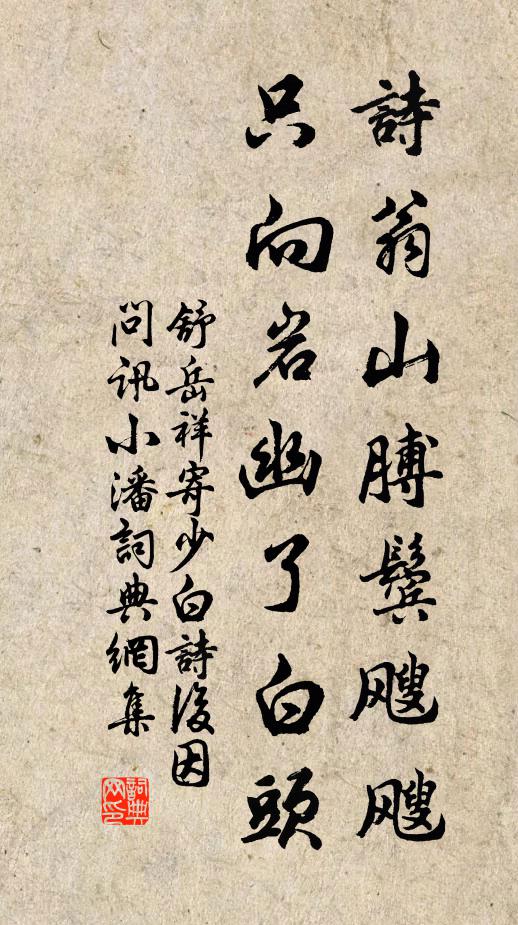 詩翁山膊鬓颼颼
只向岩幽了白頭
舒岳祥寄少白詩後因
問訊小潘詞典網集
詞典网印